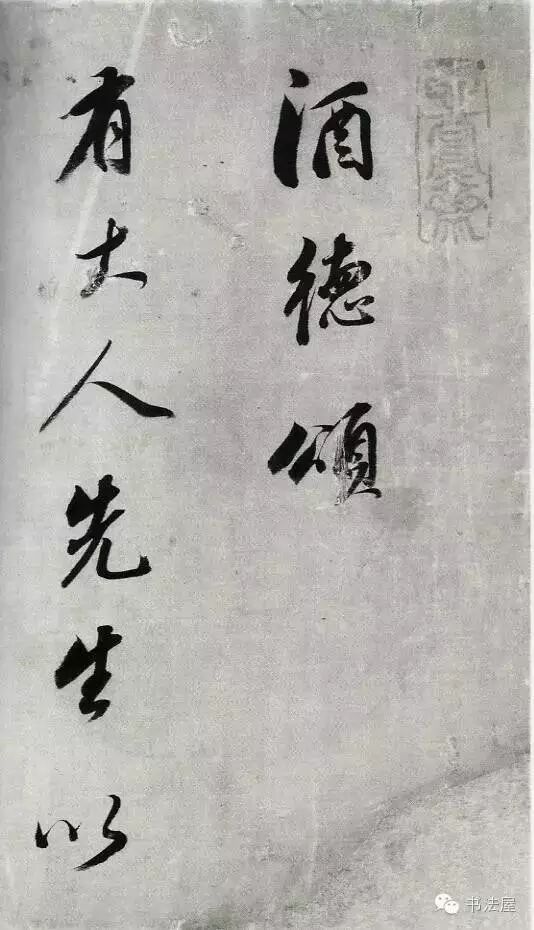 酒德頌
有大人先生以
玄賞齋
书法屋